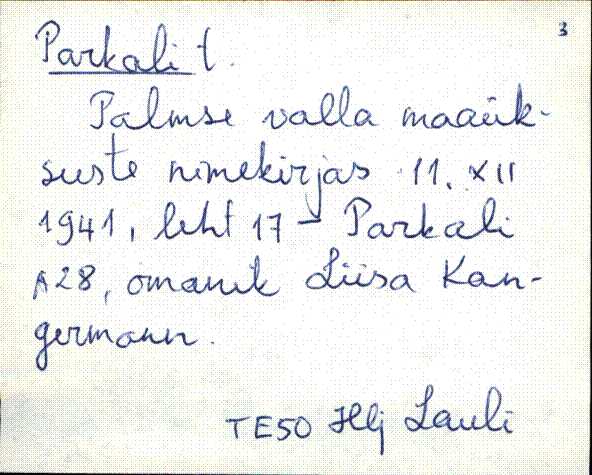 3
Parkali t.
Palmse valla maaük-
suste nimekirjas 11. XII
1941, leht 17 - Parkali
A28, omanik Liisa Kan-
germann.
TE50 Hlj Lauli